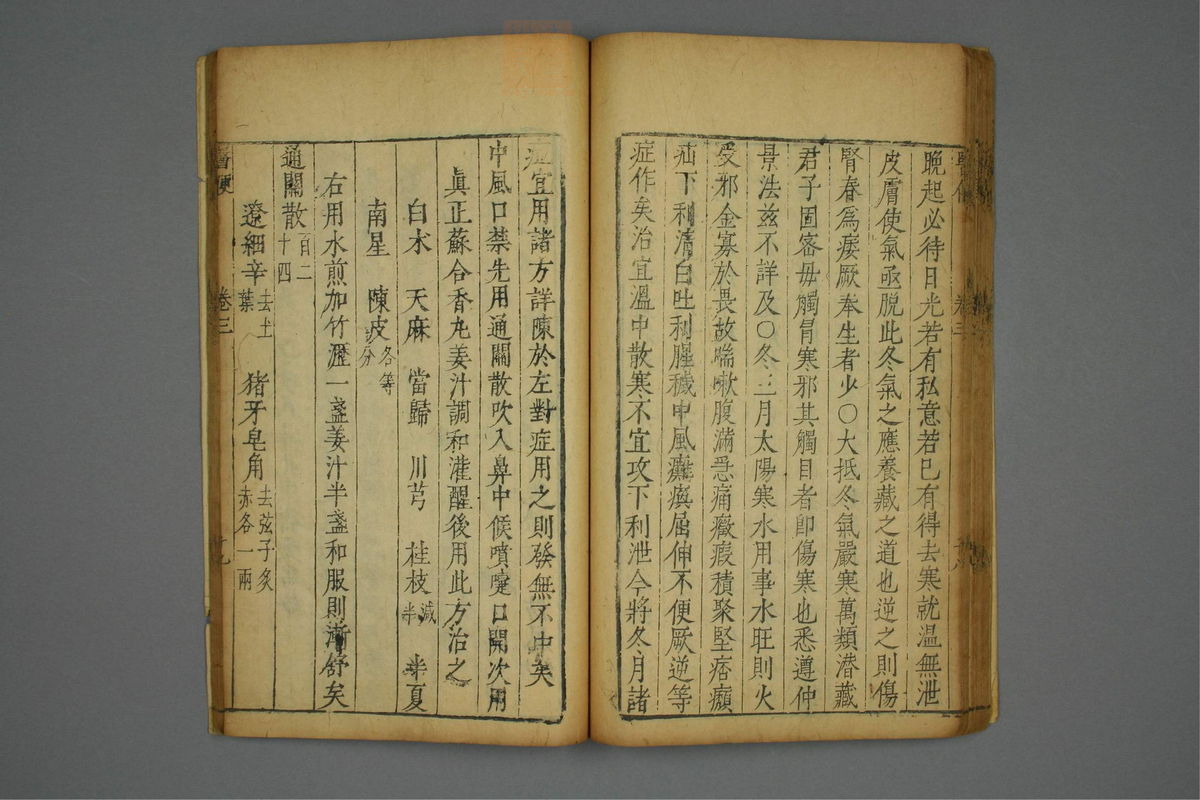 晚起必待日光若有私意若已有得去寒就温無泄
皮膚使氣亟脱此冬氣之應養藏之道也逆之則傷
腎春爲痿厥奉生者少〇大抵冬氣嚴寒萬類潜藏
君子固密毋觸冒寒邪其觸目者卽傷寒也悉遵仲
景法兹不詳及〇冬三月太陽寒水用事水旺則火
受邪金寡於畏故喘嗽腹滿悉痛癥瘕積聚堅痞癩
疝下利清白吐利腥穢中風癱瘓屈伸不便厥逆等
症作矣治宜溫中散寒不宜攻下利泄今將冬月諸
症宜用諸方詳陳於左對症用之則發無不中矣
中風口禁先用通關散吹入鼻中候噴嚏口開次用
眞正蘇合香丸姜汁調和灌醒後用此方治之
白术 天麻 當歸 川芎 桂枝減半 半夏
南星 陳皮各等分
右用水煎加竹瀝一盞姜汁半盞和服則漸舒矣
通關散一百二十四
遼細辛去土葉 猪牙皂角去弦子炙赤各一兩
醫便 卷三